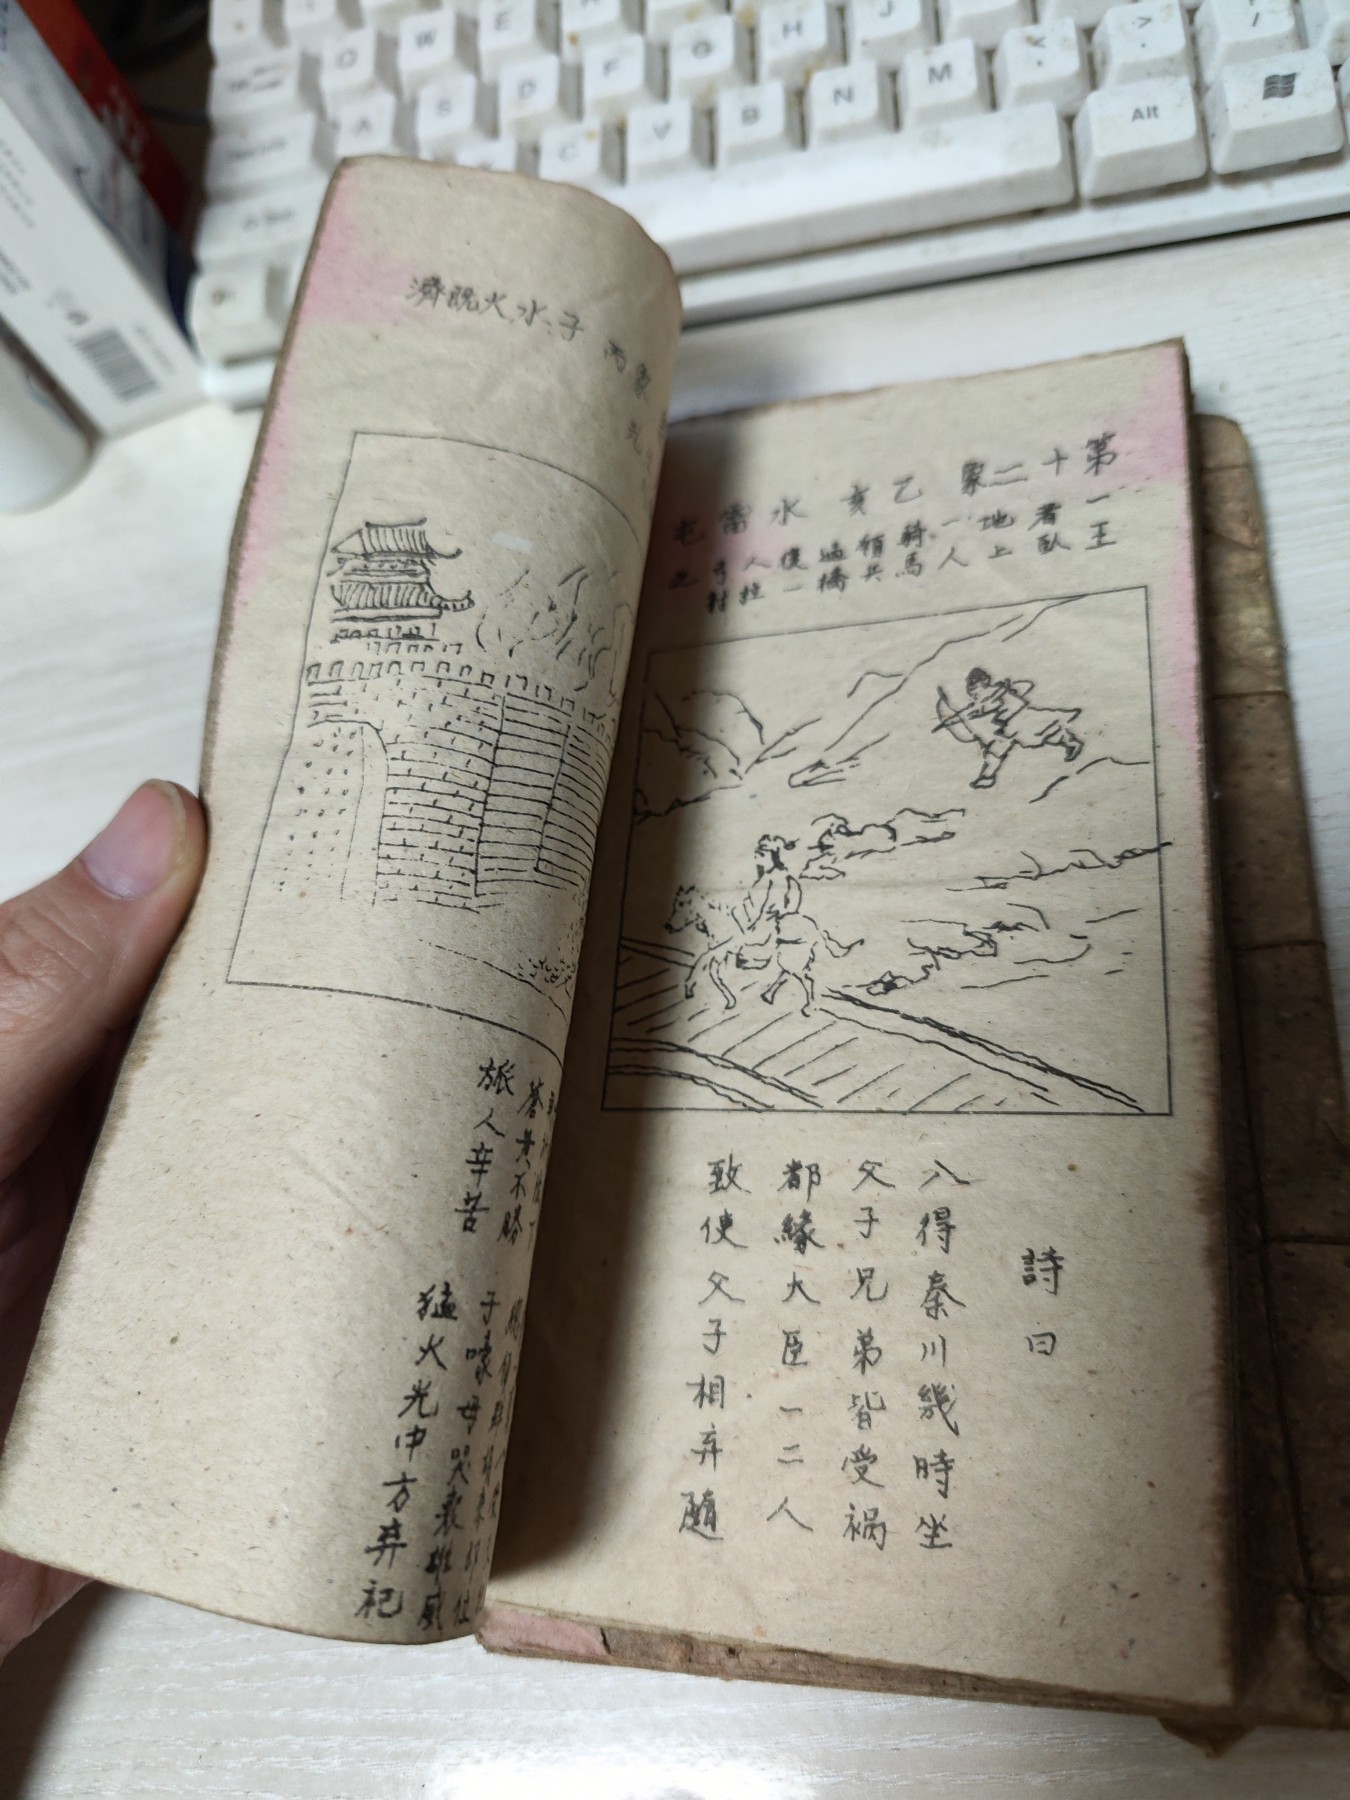 第十二象 乙亥 水雷屯
一王
者臥
地上
一人
騎馬
領兵
過橋
後一
人拉
弓射
之
詩曰
八得秦川幾時坐
父子兄弟皆受禍
都緣大臣一二人
致使父子相弃隨
象 丙子 水火既濟
蒼黃不勝
旅人辛苦
子嚎母哭
猛火光中方弃祀
W E
H J
A S D F G
C V B N M
Alt